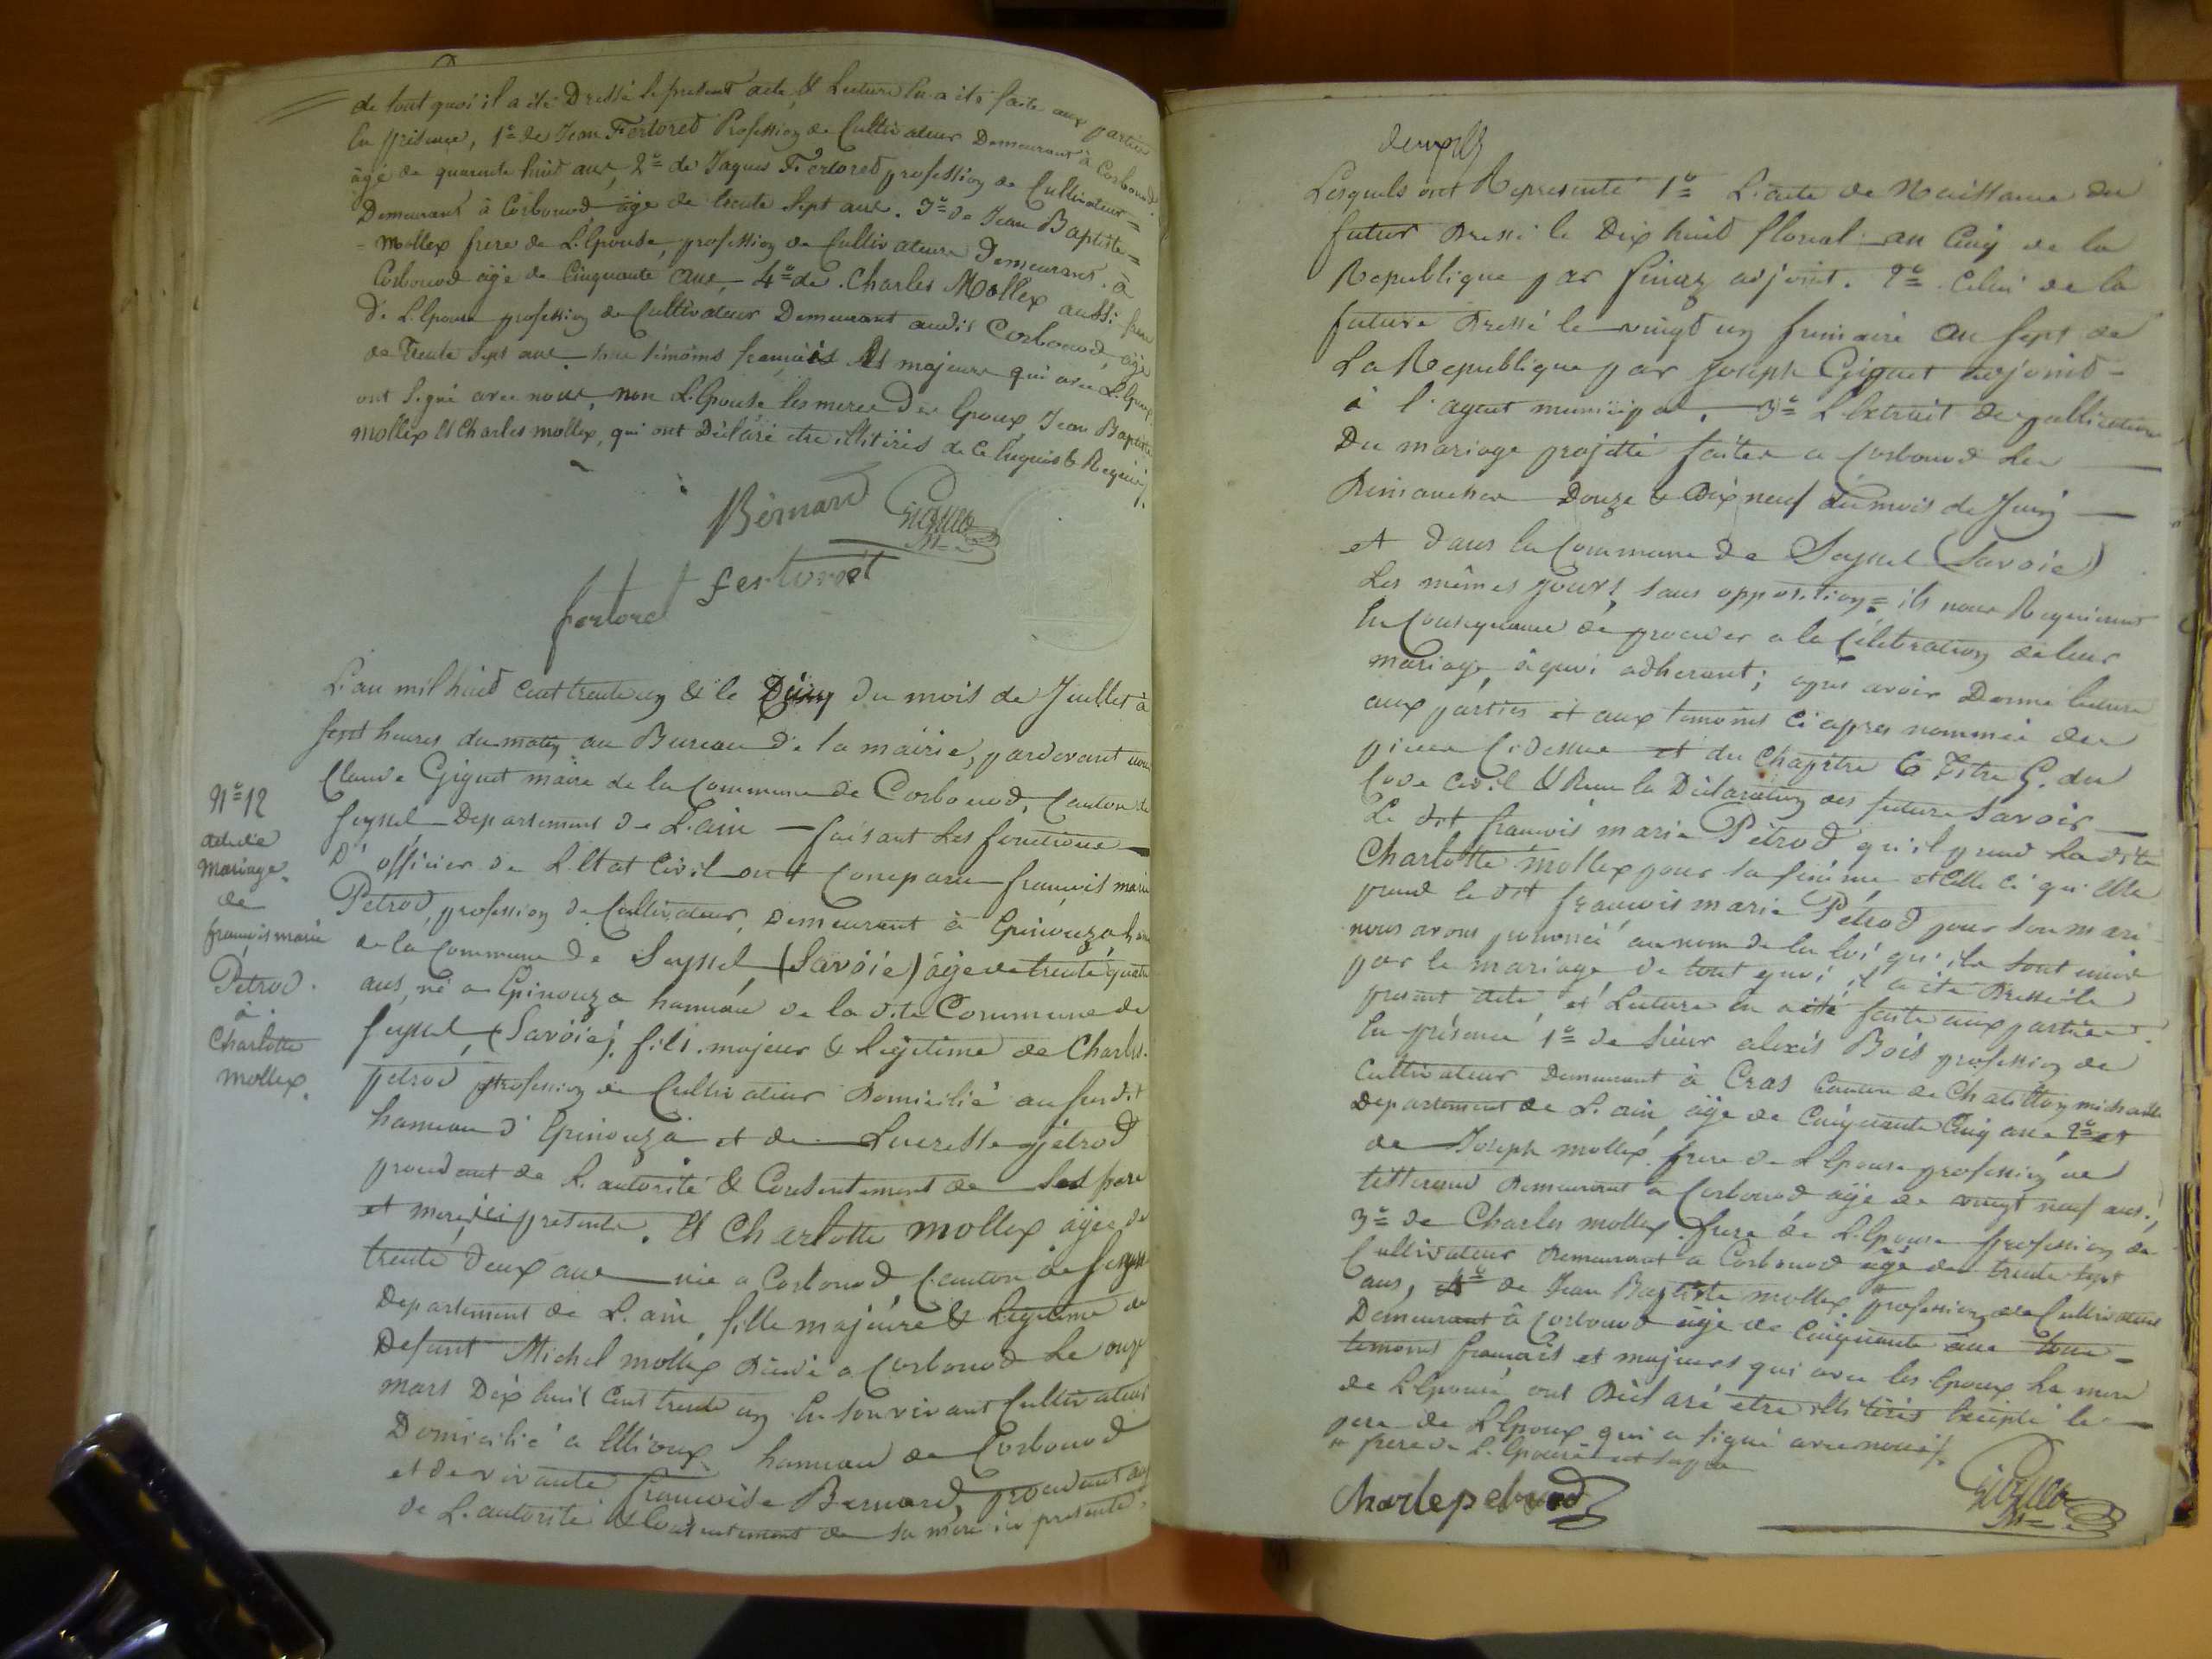 de tout quoi il a été Dressé le present acte, & Lecture lu a été faite aux parties
En présence, 1º de Jean Fertoret Profession de Cultivateur Demeurant à Corbonod
âgé de quarante huit ans, 2º de Jaques Fertoret profession de Cultivateur =
Demeurant à Corbonod âgé de trente Sept ans. 3º de Jean Baptiste =
= Mollex frere de L'Epouse, profession de Cultivateur Demeurant à
Corbonod âgé de Cinquante ans, 4º de Charles Mollex aussi frere
de L'Epouse profession de Cultivateur Demeurant audit Corbonod, âgé
de Trente Sept ans tous témoins français Et majeurs qui avec L'Epoux
ont Signé avec nous, non L'Epouse les meres des Epoux, Jean Baptiste
mollex Et Charles mollex, qui ont Déclaré être illitirés de Ce Enquis & Requis
Bernard Giguet
Me
fertoret fertoret
L'an mil huit cent trente un & le Du mois de Juillet à
sept heures du matin au Bureau de la mairie, pardevant nous
Claude Giguet maire de la Commune de Corbonod, Canton de
Seyssel Departement de L'ain — faisant Les fonctions —
D'officier de L'Etat Civil ont Comparu françois marie
Pétrod, profession de Cultivateur, Demeurant à Epinouza hameau
de la Commune de Seyssel, (Savoie) âgé de trente quatre
ans, né a Epinouza hameau de la dite Commune de
Seyssel, (Savoie), fils majeur & Légitime de Charles
petrod profession de Cultivateur Domicilié au susdit
hameau d'Epinouza et de Lucresse pétrod
procédant de L'autorité & Consentement de Ses pere
et mere, ici présents. Et Charlotte mollex âgée de
trente Deux ans née a Corbonod, Canton de Seyssel
Departement de L'ain, fille majeure & Légitime de
Defunt Michel mollex Décédé a Corbonod Le onze
mars Dix huit Cent trente un En Son vivant Cultivateur
Domicilié a hameau de Corbonod
et de vivante françoise Bernard, procédant de
de L'autorité & Consentement de sa mère ici présente
Nº 12
acte de
Mariage
de
françois marie
Pétrod.
à
Charlotte
mollex.
Lesquels ont Representé 1º L'acte de Naissance du
futur Dressé le Dix huit floreal an Cinq de la
Republique par finaz adjoint. 2º Celui de la
future Dressé le vingt un frimaire an sept de
La Republique par Joseph Giguet adjoint =
à l'agent municipal. 3º L'Extrait des publications
Du mariage projetté faites a Corbonod Les —
Dimanches Douze & Dix neuf du mois de Juin —
et dans la Commune de Seyssel (Savoie)
Les mêmes jours, sans opposition = ils nous Requierent
En Consequence de proceder a la Célébration de leur
mariage, à quoi adherant; apres avoir Donné lecture
aux parties et aux temoins ci apres nommés des
pieces Cidessus et du Chapitre 6 Titre 5. du
Code Civil & Recu la Déclaration des futurs Savoir —
Le dit françois marie Pétrod qu'il prend La dite
Charlotte mollex pour sa femme et Celle ci qu'elle
prend le dit françois marie Pétrod pour son mari
nous avons prononcé au nom de la loi qu'ils sont unis
par le mariage de tout quoi il a été Dressé le
présent acte, et Lecture en a été faite aux parties
En présence 1º de sieur alexis Bois profession de
Cultivateur Demeurant à Cras Canton de Chatillon michaille
Departement de L'ain, âgé de Cinquante Cinq ans 2º et
de Joseph mollex frere de L'Epouse profession de
tisserand Demeurant a Corbonod âgé de vingt neuf ans.,
3º de Charles mollex frere de L'Epouse profession de
Cultivateur Demeurant a Corbonod âgé de trente sept
ans, 4º de Jean Baptiste mollex profession de Cultivateur
Demeurant à Corbonod âgé de Cinquante ans tous =
temoins français et majeurs qui avec les Epoux La mere
de L'Epouse ont Déclaré etre illitirés Excepté le —
pere de L'Epoux qui a signé avec nous.
# frere de L'Epouse
Charle petrod Giguet
Me